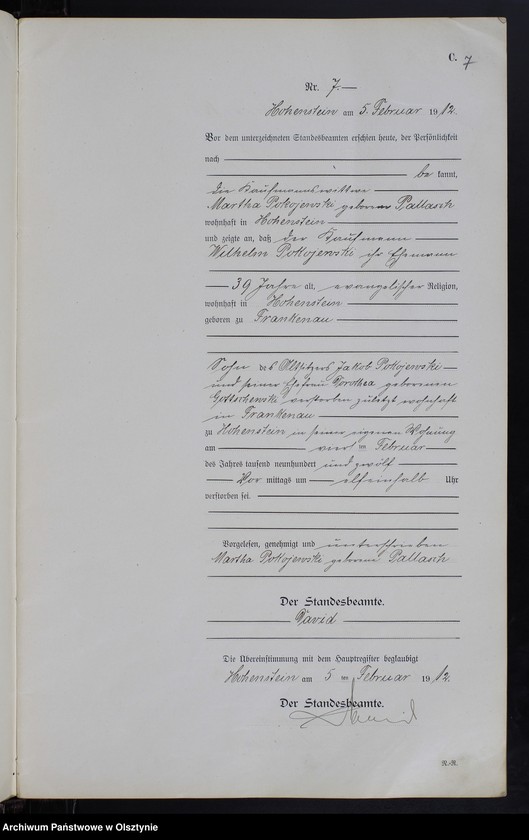 C. 7
Nr. 7.
Hohenstein am 5. Februar 1912.
Vor dem unterzeichneten Standesbeamten erschien heute, der Persönlichkeit
nach
be kannt,
die Kaufmannswittwe
Martha Pokojewski geborene Pallasch
wohnhaft in Hohenstein
und zeigte an, daß der Kaufmann
Wilhelm Pokojewski ihr Ehemann
39 Jahre alt, evangelischer Religion,
wohnhaft in Hohenstein
geboren zu Frankenau
Sohn des Altsitzers Jakob Pokojewski
und seiner Ehefrau Dorothea geborenen
Gottschewski verstorben zuletzt wohnhaft
in Frankenau
zu Hohenstein in seiner eigenen Wohnung
am vierten Februar
des Jahres tausend neunhundert und zwölf
Vor mittags um elfeinhalb Uhr
verstorben sei.
Vorgelesen, genehmigt und unterschrieben
Martha Pokojewski geborene Pallasch
Der Standesbeamte.
David
Die Übereinstimmung mit dem Hauptregister beglaubigt
Hohenstein am 5 ten Februar 1912.
Der Standesbeamte.
David
Archiwum Państwowe w Olsztynie